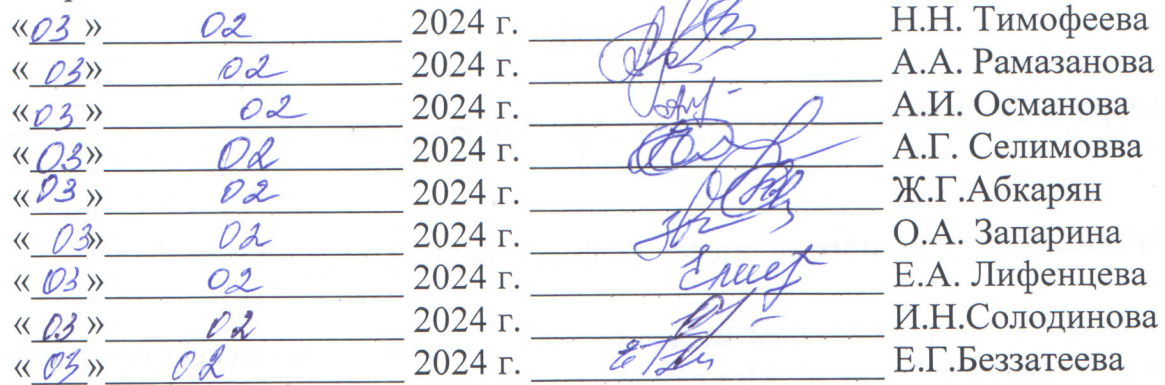 «03» 02 2024 г. Н.Н. Тимофеева
«03» 02 2024 г. А.А. Рамазанова
«03» 02 2024 г. А.И. Османова
«03» 02 2024 г. А.Г. Селимовва
«03» 02 2024 г. Ж.Г.Абкарян
«03» 02 2024 г. О.А. Запарина
«03» 02 2024 г. Е.А. Лифенцева
«03» 02 2024 г. И.Н.Солодинова
«03» 02 2024 г. Е.Г.Беззатеева